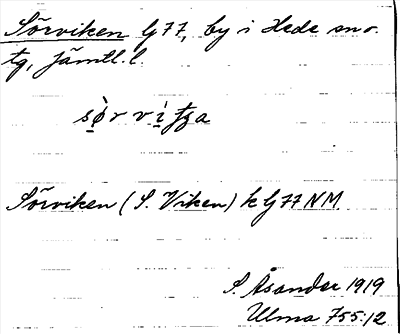 Sörviken G 77, by i Hede sn o.
tg, Jämtl. l.
Sörviken (S. Viken) k G 77 NM.
S. Åsander 1919
Ulma 755:12